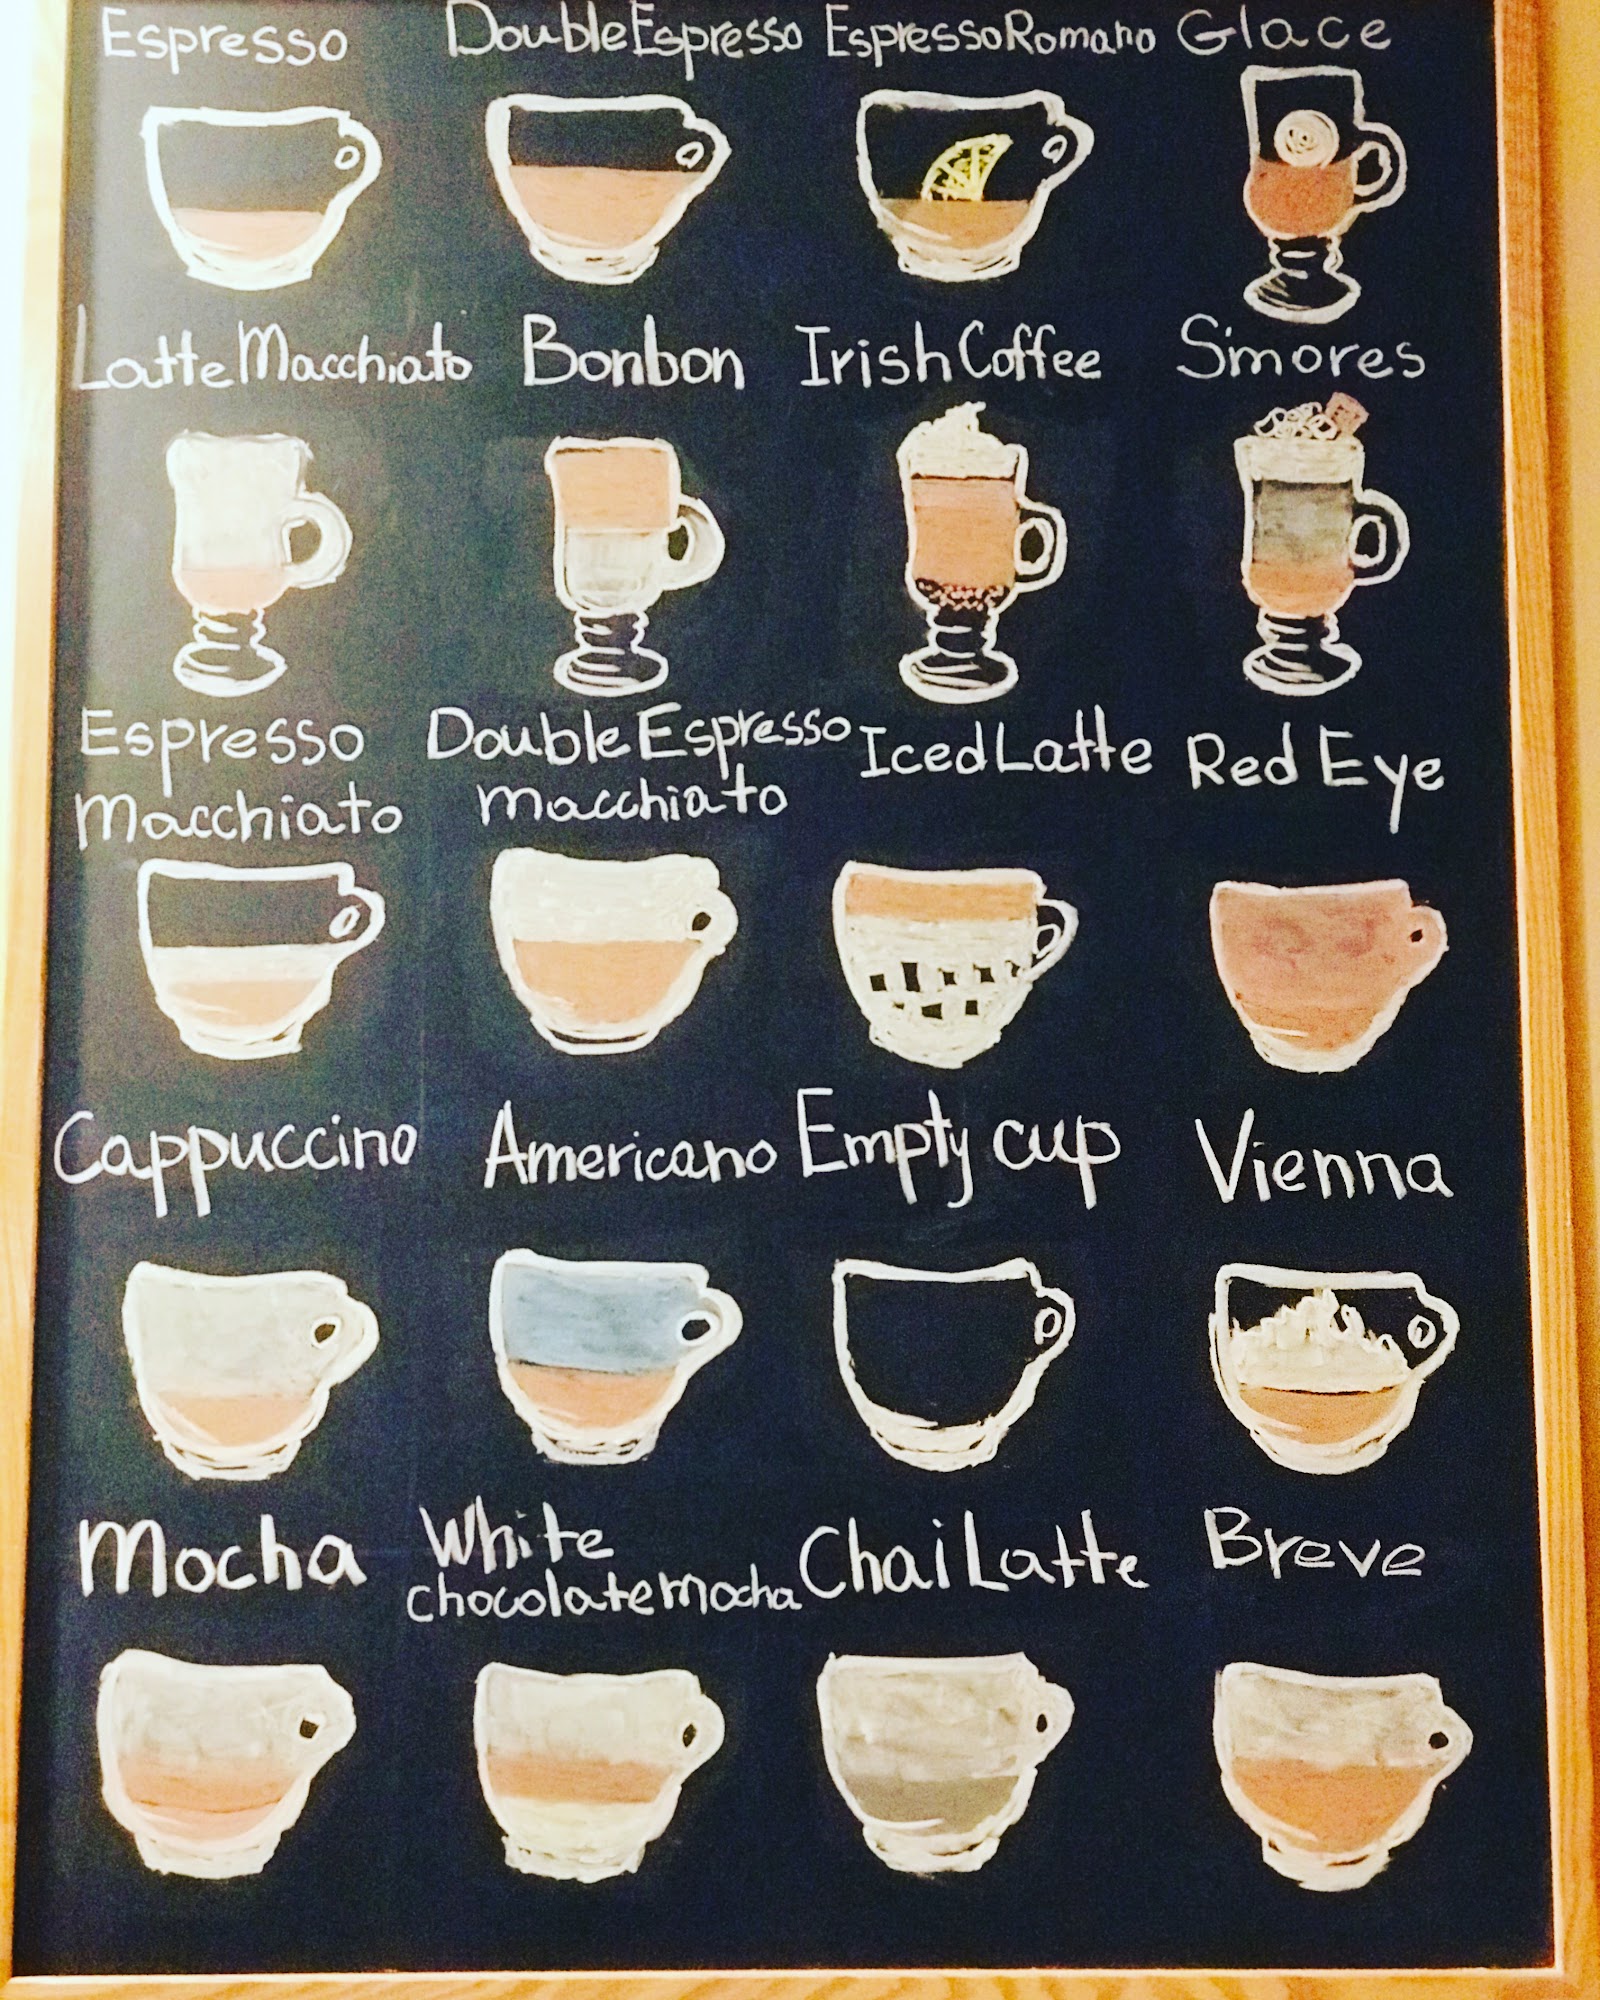 Espresso
Double Espresso
Espresso Romano
Glace
Latte Macchiato
Bonbon
Irish Coffee
S'mores
Espresso
Macchiato
Double Espresso
macchiato
Iced Latte
Red Eye
Cappuccino
Americano
Empty cup
Vienna
Mocha
White
chocolate mocha
Chai Latte
Breve